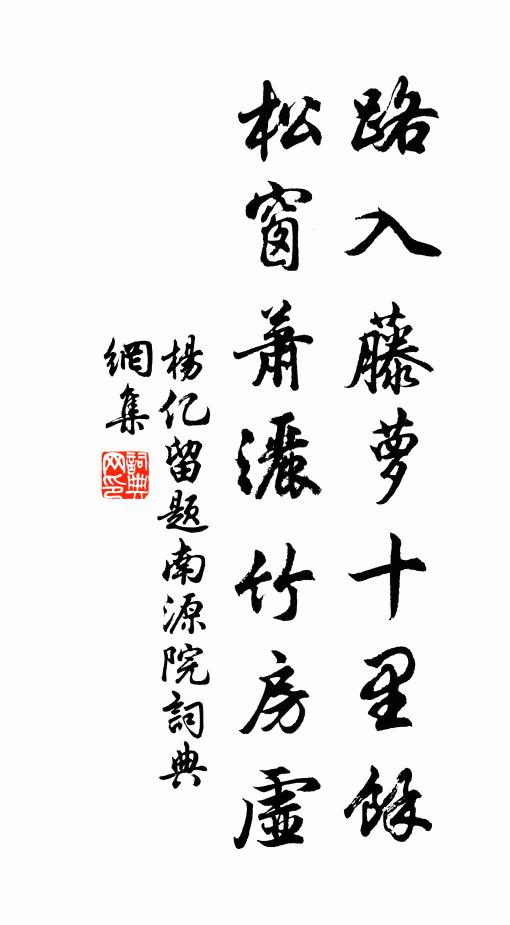 路入藤萝十里餘
松窗蕭灑竹房虛
楊亿留题南源院詞典
網集
詞典网印